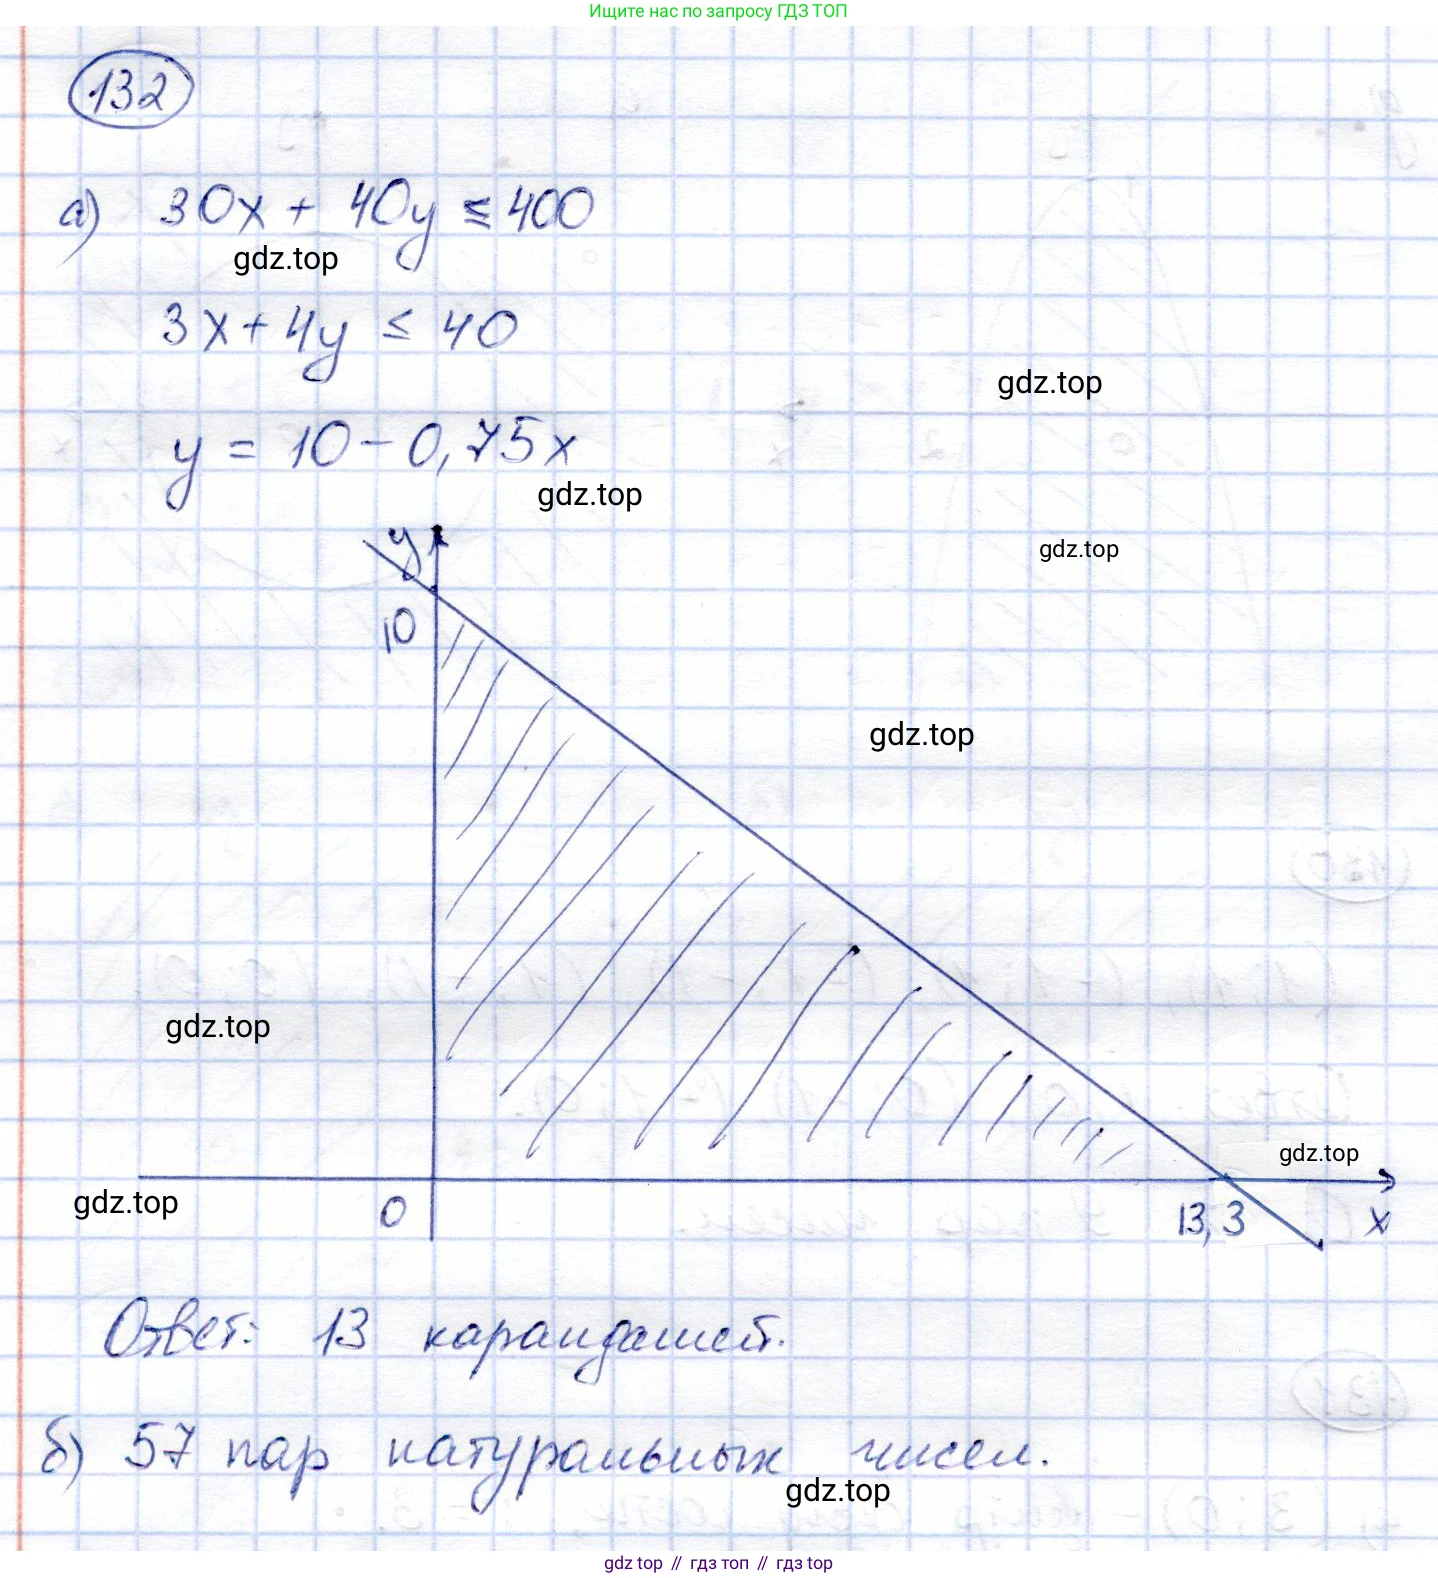 Ищите нас по запросу ГДЗ ТОП
132
а) 30x + 40y ≤ 400
gdz.top
3x + 4y ≤ 40
gdz.top
y = 10 - 0,75x
gdz.top
y
gdz.top
10
gdz.top
gdz.top
gdz.top
gdz.top
0
13,3
x
Ответ: 13 карандашей.
б) 57 пар натуральных чисел.
gdz.top
gdz top // гдз топ // гдз top